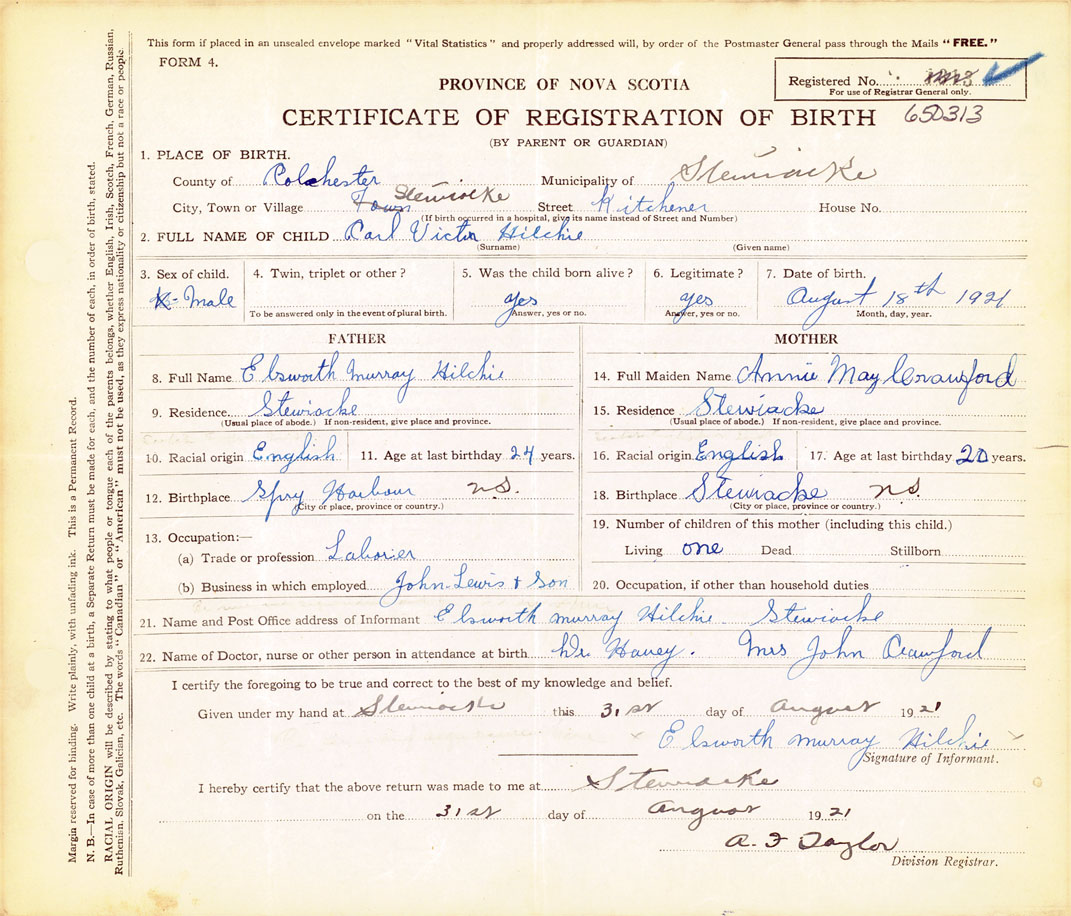 This form if placed in an unsealed envelope marked "Vital Statistics" and properly addressed will, by order of the Postmaster General pass through the Mails "FREE."
FORM 4.
Registered No.
For use of Registrar General only.
PROVINCE OF NOVA SCOTIA
CERTIFICATE OF REGISTRATION OF BIRTH 650313
(BY PARENT OR GUARDIAN)
1. PLACE OF BIRTH.
County of Colchester Municipality of Stewiacke
City, Town or Village Town Stewiacke Street Kitchener House No.
(If birth occurred in a hospital, give its name instead of Street and Number)
2. FULL NAME OF CHILD Carl Victor Hilchie
(Surname) (Given name)
3. Sex of child. 4. Twin, triplet or other? 5. Was the child born alive? 6. Legitimate? 7. Date of birth.
Male yes yes August 18th 1921
To be answered only in the event of plural birth. Answer, yes or no. Answer, yes or no. Month, day, year.
FATHER MOTHER
8. Full Name Elsworth Murray Hilchie 14. Full Maiden Name Annie May Crawford
9. Residence Stewiacke 15. Residence Stewiacke
(Usual place of abode.) If non-resident, give place and province. (Usual place of abode.) If non-resident, give place and province.
10. Racial origin English 11. Age at last birthday 24 years. 16. Racial origin English 17. Age at last birthday 20 years.
12. Birthplace Spry Harbour N.S. 18. Birthplace Stewiacke N.S.
(City or place, province or country.) (City or place, province or country.)
13. Occupation:— 19. Number of children of this mother (including this child.)
(a) Trade or profession Laborier Living one Dead Stillborn
(b) Business in which employed John Lewis + Son 20. Occupation, if other than household duties
21. Name and Post Office address of Informant Elsworth Murray Hilchie Stewiacke
22. Name of Doctor, nurse or other person in attendance at birth Dr. Havey. Mrs John Crawford
I certify the foregoing to be true and correct to the best of my knowledge and belief.
Given under my hand at Stewiacke this 31st day of August 1921
Elsworth Murray Hilchie
Signature of Informant.
I hereby certify that the above return was made to me at Stewiacke
on the 31st day of August 1921
A. F Taylor
Division Registrar.
Margin reserved for binding. Write plainly, with unfading ink. This is a Permanent Record.
N. B.—In case of more than one child at a birth, a Separate Return must be made for each, and the number of each, in order of birth, stated.
RACIAL ORIGIN will be described by stating to what people or tongue each of the parents belongs, whether English, Irish, Scotch, French, German, Russian,
Ruthenian, Slovak, Galician, etc. The words "Canadian" or "American" must not be used, as they express nationality or citizenship but not a race or people.